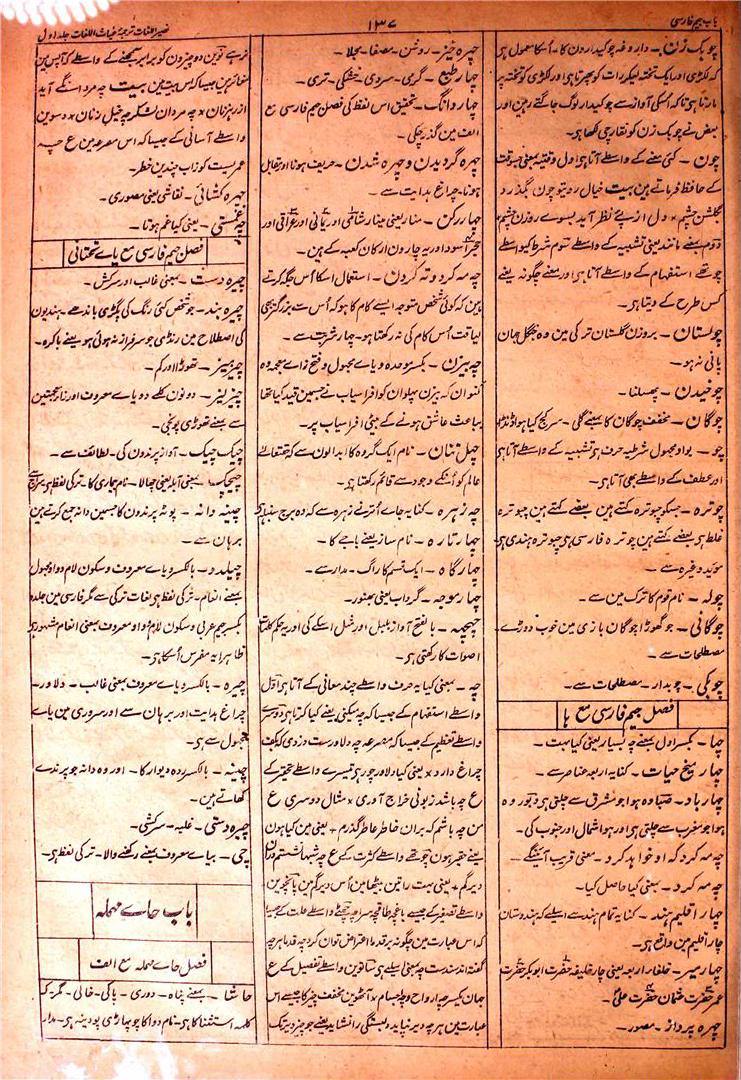 باب جیم فارسی
۱۳۷
نصیر اللغات ترجمۂ غیاث اللغات جلد اول
چوبک زن ـ داروغہ چوکیدارون کا ـ اسکا معمول ہی
کہ لکڑی اور ایک تختہ لیکر رات کو پھرتا ہی اور لکڑی کو تختہ پر
مارتا ہی تاکہ اسکی آواز سے چوکیدار لوگ جاگتے رہین اور
بعض نے چوبک زن کو نقارچی لکھا ہی ـ
چون ـ کئی معنے کے واسطے آتا ہی اول وقتیہ بمعنی جسوقت
کے حافظ فرماتے ہین بیت خیال روے تو چون بگذرد
گلشن چشم * دل از پئے نظر آید بسوے روزن چشم
دوم بمعنے مانند یعنی تشبیہ کے واسطے سوم شرط کیواسطے
چوتھے استفہام کے واسطے آتا ہی اور معنے چگونہ یعنے
کس طرح کے دیتا ہی ـ
چولستان ـ بروزن گلستان ترکی مین وہ جنگل جہان
پانی نہ ہو ـ
چوخیدن ـ پھسلنا ـ
چوگان ـ مخفف چوگان کا بمعنے گلی ـ سرکج کیا ہوا ڈنڈا
چو ـ بواو مجہول شرطیہ حرف ہی تشبیہ کے واسطے آتا ہی
اور عطف کے واسطے بھی آتا ہی ـ
چوترہ ـ جسکو چبوترہ کہتے ہین بعضے کہتے ہین چبوترہ
غلط ہی بعضے کہتے ہین چوترہ فارسی ہی چبوترہ ہندی ہی
موید وغیرہ سے ـ
چولہ ـ نام قوم کا ترک مین سے ـ
چوگانی ـ جو گھوڑا چوگان بازی مین خوب دوڑے ـ
مصطلحات سے ـ
چوبکی ـ چوبدار ـ مصطلحات سے ـ
فصل جیم فارسی مع ہا
چہا ـ بکسر اول بمعنے چہ بسیار یعنی کیا بہت ـ
چہار میخ حیات ـ کنایہ اربعہ عناصر سے ـ
چہار باد ـ صبا وہ ہوا جو مشرق سے چلتی ہی دبور وہ
ہوا جو مغرب سے چلتی ہی اور ہوا شمال اور جنوب کی ـ
چہ مہ کرد کہ او خواہد کرد ـ معنی قریب آئینگے ـ
چہ مہ کرد ـ بمعنی کیا حاصل کیا ـ
چہار اقلیم ہند ـ کنایہ تمام ہند سے اسلیے کہ ہندوستان
چار اقلیم مین واقع ہی ـ
چہار میر ـ خلفاء اربعہ یعنی چار خلیفہ حضرت ابوبکر حضرت
عمر حضرت عثمان حضرت علی ـ
چہرہ پرداز ـ مصور ـ
چہرہ خیز ـ روشن ـ مصفا ـ مجلا ـ
چہار طبع ـ گرمی ـ سردی ـ خشکی ـ تری ـ
چہار دانگ ـ تحقیق اس لفظ کی فصل جیم فارسی مع
الف مین گذر چکی ـ
چہرہ گردیدن و چہرہ شدن ـ حریف ہونا اور مقابل
ہونا ـ چراغ ہدایت سے ـ
چہار رکن ـ منار یعنی مینار شامی اور یمانی اور عراقی اور
حجر اسود اور یہ چارون ارکان کعبہ کے ہین ـ
چہ مہ کرد و تہ کردن ـ استعمال اسکا اس جگہ کرتے
ہین کہ کوئی شخص متوجہ ایسے کام کا ہو کہ اس سے بزرگتر بھی
لیاقت اس کام کی نہ رکھتا ہو ـ چار شربت سے ـ
چہ بیژن ـ بکسر موحدہ و یاے مجہول و فتح زاے معجمہ وہ
کنوان کہ بیژن پہلوان کو افراسیاب نے جسمین قید کیا تھا
بباعث عاشق ہونے کے بیٹی افراسیاب پر ـ
چہل تنان ـ نام ایک گروہ کا ابدالون سے کہ حقتعالے
عالم کو انکے وجود سے قائم رکھتا ہی ـ
چہ زہرہ ـ کنایہ جاے اترنے زہرہ سے کہ وہ برج سنبلہ ہی
چہار تارہ ـ نام ساز یعنے باجے کا ـ
چہار گاہ ـ ایک قسم کا راگ ـ مدار سے ـ
چہار موجہ ـ گرداب یعنی بھنور ـ
چہچہہ ـ بالفتح آواز بلبل اور مثل اسکے کی اور یہ حکم کلمات
اصوات کا رکھتی ہی ـ
چہ ـ بمعنی کیا یہ حرف واسطے چند معانی کے آتا ہی اول
واسطے استفہام کے جیسا کہ چہ میکنی یعنے کیا کرتا ہی دوسرے
واسطے تعظیم کے جیسا کہ مصرعہ چہ دلاورست دزدی کہ بکف
چراغ دارد * یعنی کیا دلاور چور ہی تیسرے واسطے تحقیر کے
ع چہ باشد زبونی خراج آوری * مثال دوسری ع
من چہ باشم کہ بران خاطر عاطر گذرم * یعنی مین کیا ہون
یعنے حقیر ہون چوتھے واسطے کثرت کے ع چہ شبہا نشستم دران
دیر گم * یعنی بہت راتین بیٹھا مین اس دیر گم مین پانچوین
واسطے تصغیر کے جیسے باغچہ طاقچہ سراچہ چھٹے واسطے علت کے جیسا
کہ اس عبارت مین چگونہ بر قدما اعتراض توان کرد چہ قدما ہرچہ
گفتہ اند سندست چہ بمعنی اسلیے ہی ساتوین واسطے تفصیل کے ع
جہان یکسر چہ ارواح و چہ اجسام * آٹھوین مخفف چیز کا جیسے اس
عبارت مین ہرچہ دیر نپاید دلبستگی را نشاید یعنے جو چیز دیر تک
نرہے نوین دو چیزون کو برابر سمجھنے کے واسطے کہ آپس مین
مغائر ہین جیسا کہ اس بیت مین بیت چہ مردانگے آید
از رہزنان * چہ مردان لشکر چہ خیل زنان * دسوین
واسطے آسانی کے جیسا کہ اس مصرعہ مین ع چہ
عمریست کوزاب چندین خطر ـ
چہرہ کشائی ـ نقاشی یعنی مصوری ـ
چہ غمستی ـ یعنی کیا غم ہوتا ـ
فصل جیم فارسی مع یاے تحتانی
چیرہ دست ـ بمعنی غالب اور سرکش ـ
چیرہ بند ـ جو شخص کئی رنگ کی پگڑی باندھے ـ ہندیون
کی اصطلاح مین رنڈی جو سرفراز نہ ہوئی ہو یعنے باکرہ ـ
چیزمیز ـ تھوڑا اور کم ـ
چیز لیز ـ دونون کلمے دو یاے معروف اور زاے معجمتین
سے بمعنے تھوڑی پونجی ـ
چیک چیک ـ آواز پرندون کی ـ لطائف سے ـ
چیچک ـ بمعنی آبلہ یعنی چھالا ـ نام بیماری کا ـ ترکی لفظ ہی سراج سے
چینہ دانہ ـ پوٹہ پرندون کا جسمین دانہ جمع کرتے ہین
برہان سے ـ
چیلدو ـ بالکسر و یاے معروف و سکون لام و واو مجہول
بمعنے انعام ـ ترکی لفظ ہی لغات ترکی سے مگر فارسی مین جلدو
بکسر جیم عربی و سکون لام و واو معروف بمعنی انعام مشہور ہی
ظاہرا یہ مفرس اسکا ہی ـ
چیرہ ـ بالکسر و یاے معروف بمعنی غالب ـ دلاور ـ
چراغ ہدایت اور برہان سے اور سروری مین یاے
مجہول سے ہی ـ
چینہ ـ بالکسر ردہ دیوار کا ـ اور وہ دانہ جو پرندے
کھاتے ہین ـ
چیرہ دستی ـ غلبہ ـ سرکشی ـ
چی ـ بیاے معروف بمعنے رکھنے والا ـ ترکی لفظ ہی ـ
باب حاے مہملہ
فصل حاے مہملہ مع الف
حاشا ـ بمعنے پناہ ـ دوری ـ پاکی ـ خالی ـ مگر ـ کہ
کلمہ استثنا کا ہی ـ نام دوا کا جو پہاڑی پودینہ ہی ـ مدار